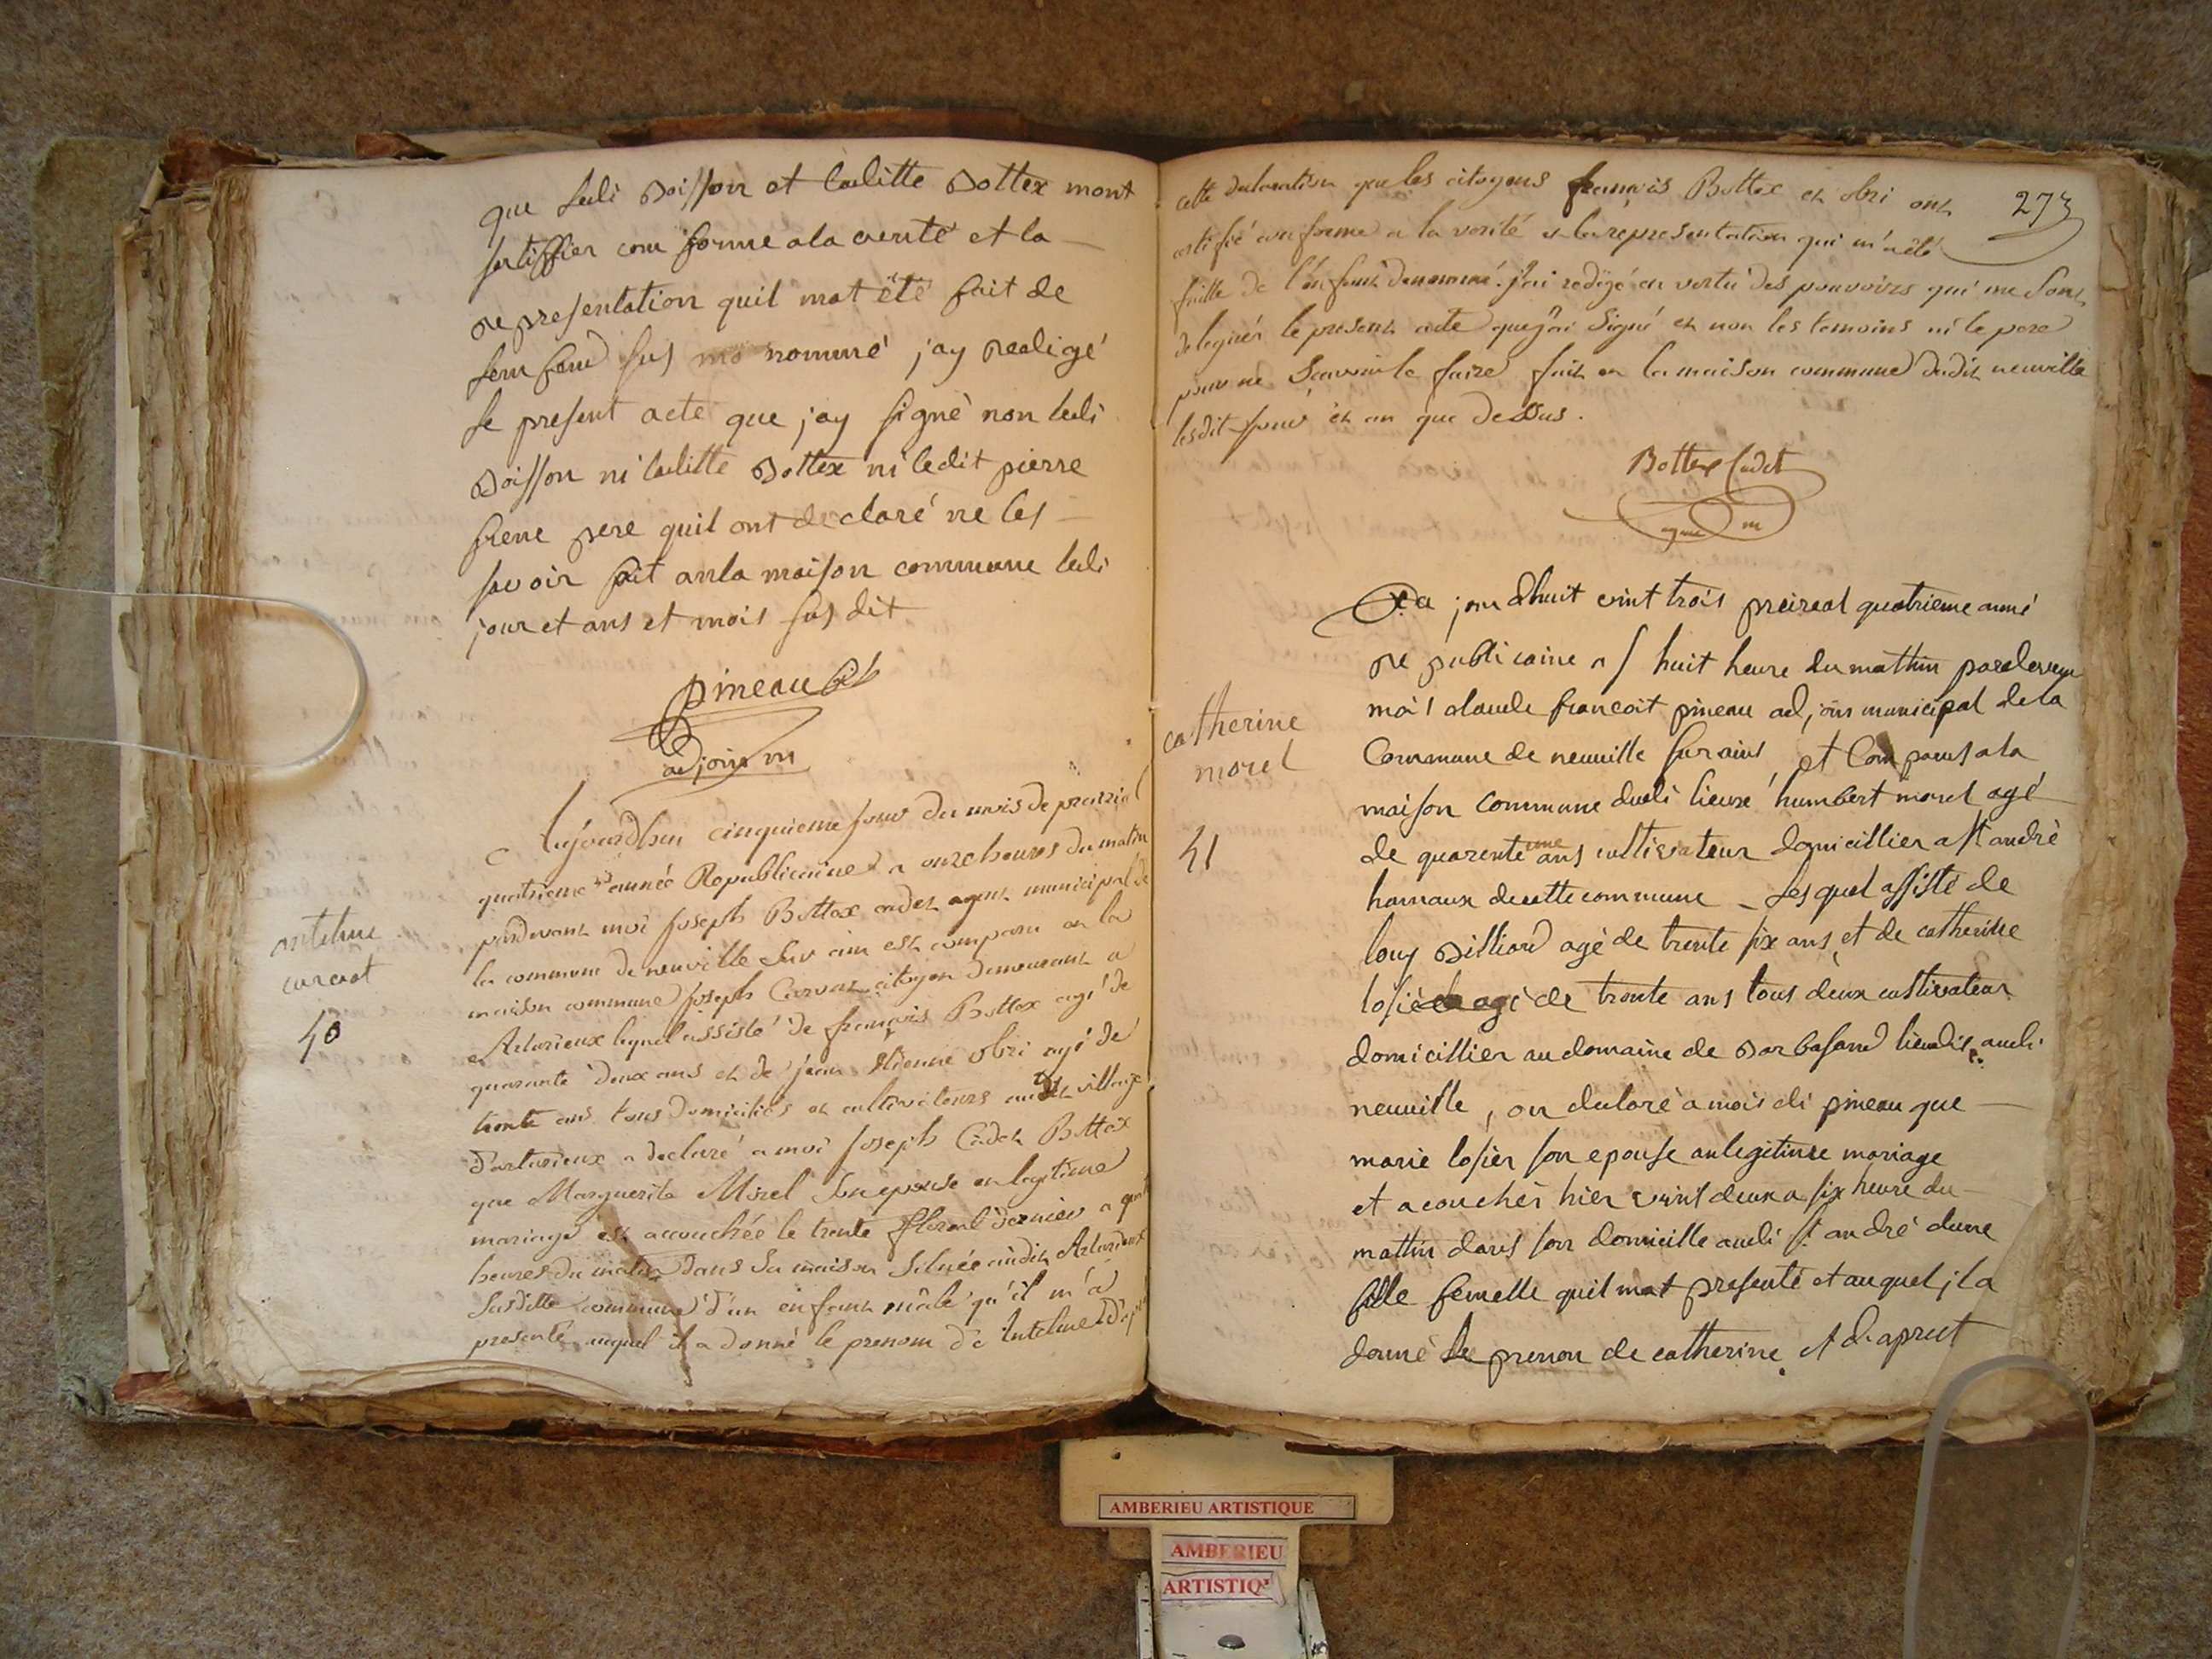 que ledi Boisson et laditte Bottex mont
sertiffier com forme a la verité et la
representation quil mat été fait de
lenfend sus nommé jay redigé
le present acte que jay signè non ledi
Boisson ni laditte Bottex ni ledit pierre
frene pere quil ont declaré ne les
savoir fait anla maison commune ledi
jour et ans et mois sus dit
pineau
adjoin m
antelme
curvat
40
Aujourdhui cinquieme jour du mois de prairial
quatrieme année Republicaine a onze heures du matin
pardevant moi Joseph Bottex cadet agent municipal de
la commune de neuville sur ain est comparu en la
maison commune Joseph Curvat citoyen demeurant a
Arturieux lequel assisté de françois Bottex agé de
quarante deux ans et de jean Etienne obri agé de
trente ans tous domiciliés et cultivateurs audit village
d'arturieux a declaré a moi Joseph Cadet Bottex
que Marguerite Morel son epouse en legitime
mariage est accouchée le trente floreal dernier a
heures du matin dans sa maison situéé audit Arturieux
susditte commune d'un enfant mâle qu'il m'a
presenté auquel il a donné le prenom de Antelme
273
cette declaration que les citoyens françois Bottex et obri ont
certifié conforme a la verité et la representation qui m'a été
faitte de l'enfant denommé. j'ai redigé en vertu des pouvoirs qui me sont
delegués le present acte que j'ai signé et non les temoins ni le pere
pour ne sçavoir le faire fait en la maison commune dudit neuville
lesdit jour et an que dessus.
Bottex Cadet
agent m
catherine
morel
41
jourdhuit vint trois preireal quatrieme anné
re publicaine a huit heure du mathin
moi claude francoit pineau adjoin municipal de la
Commune de neuville sur ains et Comparus a la
maison commune dudi lieux humbert morel agé
de quarente une ans cultivateur domicillier a st andrè
hamaux de cette commune lesquel assisté de
louy Billiard agè de trente six ans et de catherine
losié agé de trente ans tous deux cultivateur
domicillier au domaine de Barbasand lieudit audi
neuville, on declaré a moi di pineau que
marie losier son epouse anlegitime mariage
et acouchés hier vint deux a six heure du
mattin dans son domicille audi st andré dune
fille femelle quil mat presenté et auquel jl a
donné le prenon de catherine et daprest
AMBERIEU ARTISTIQUE
AMBERIEU
ARTISTIQ